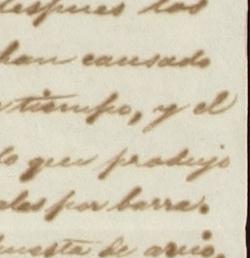 despues las
han causado
tiempo, y el
lo que produjo
ales por barra.
puesta de